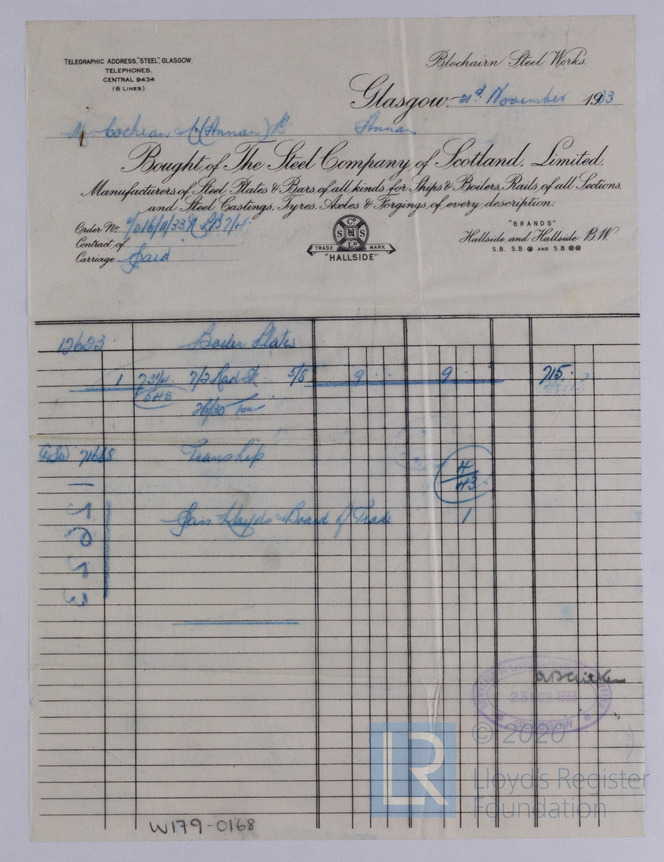 TELEGRAPHIC ADDRESS, "STEEL", GLASGOW.
TELEPHONES.
CENTRAL 9434
(6 LINES)
Blochairn Steel Works.
Glasgow, 21st November 1933
Cochran & (Annan) Ld Annan
Bought of The Steel Company of Scotland, Limited.
Manufacturers of Steel Plates & Bars of all kinds for Ships & Boilers, Rails of all Sections,
and Steel Castings, Tyres, Axles & Forgings of every description.
Order No.
Contract of
Carriage Paid
TRADE MARK
"HALLSIDE"
"BRANDS"
Hallside and Hallside B.W.
S.B. S.B. AND S.B.
12623 Boiler Plates
1 5/8 9 9 715
26/30 Ton
71668 Tranship
4
43
Pass Lloyds & Board of Trade 1
12623
GLASGOW
© 2020
LR Lloyd's Register
Foundation
W179-0168